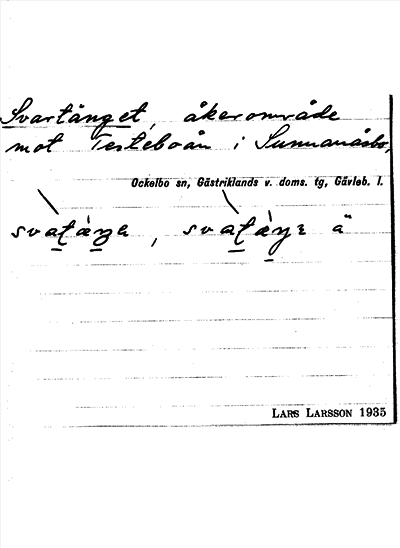 Svartänget, åkerområde
mot Testeboån i Sunnanåsbo,
Ockelbo sn, Gästriklands v. doms. tg, Gävleb. l.
ä
LARS LARSSON 1935